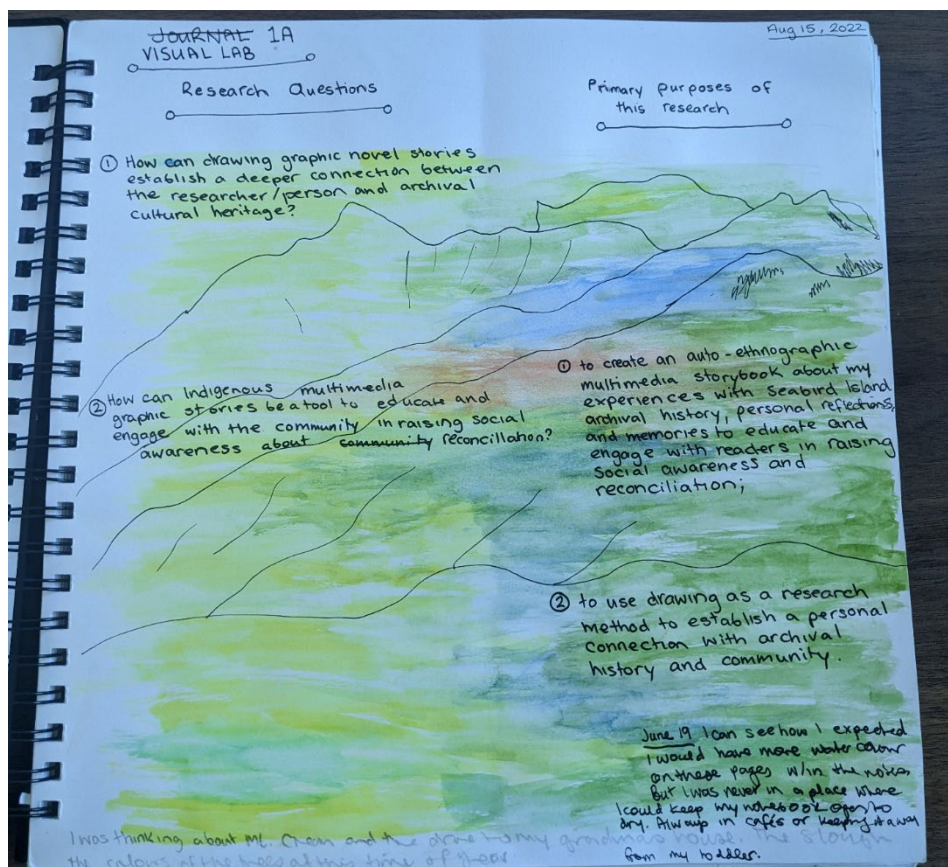 JOURNAL 1A
VISUAL LAB
Aug 15, 2022
Research Questions
Primary purposes of
this research
① How can drawing graphic novel stories
establish a deeper connection between
the researcher/person and archival
cultural heritage?
② How can Indigenous multimedia
graphic stories be a tool to educate and
engage with the community in raising social
awareness about community reconcillation?
① to create an auto-ethnographic
multimedia storybook about my
experiences with Seabird Island
archival history, personal reflections,
and memories to educate and
engage with readers in raising
social awareness and
reconciliation;
② to use drawing as a research
method to establish a personal
connection with archival
history and community.
June 19 I can see how I expected
I would have more water colour
on these pages w/in the notes
But I was never in a place where
I could keep my notebook open to
dry. Always in cafés or keeping it away
from my toddler.
I was thinking about Mt. Cheam and the drive to my house. The slough
the colours of the trees at this time of year